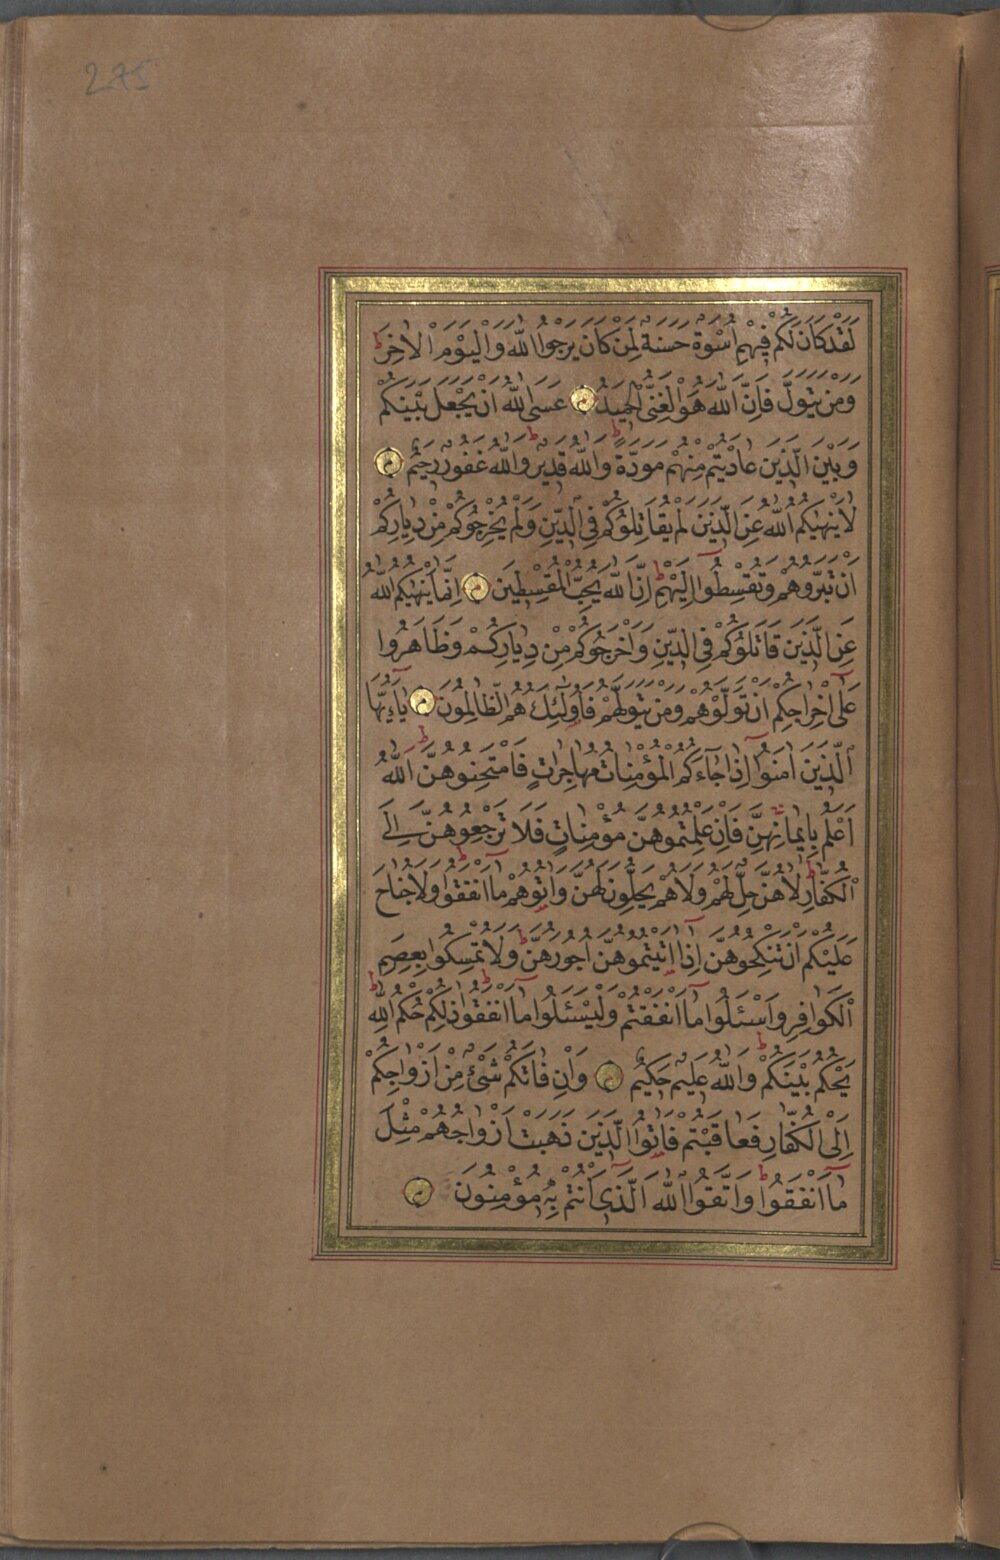 275
لَقَدْ كَانَ لَكُمْ فِيهِمْ اُسْوَةٌ حَسَنَةٌ لِمَنْ كَانَ يَرْجُوا اللّٰهَ وَالْيَوْمَ الْاٰخِرَ ط
وَمَنْ يَتَوَلَّ فَاِنَّ اللّٰهَ هُوَ الْغَنِىُّ الْحَمِيدُ م عَسَى اللّٰهُ اَنْ يَجْعَلَ بَيْنَكُمْ
وَبَيْنَ الَّذِينَ عَادَيْتُمْ مِنْهُمْ مَوَدَّةً ط وَاللّٰهُ قَدِيرٌ ط وَاللّٰهُ غَفُورٌ رَحِيمٌ م
لَا يَنْهٰيكُمُ اللّٰهُ عَنِ الَّذِينَ لَمْ يُقَاتِلُوكُمْ فِى الدِّينِ وَلَمْ يُخْرِجُوكُمْ مِنْ دِيَارِكُمْ
اَنْ تَبَرُّوهُمْ وَتُقْسِطُوٓا اِلَيْهِمْ ط اِنَّ اللّٰهَ يُحِبُّ الْمُقْسِطِينَ م اِنَّمَا يَنْهٰيكُمُ اللّٰهُ
عَنِ الَّذِينَ قَاتَلُوكُمْ فِى الدِّينِ وَاَخْرَجُوكُمْ مِنْ دِيَارِكُمْ وَظَاهَرُوا
عَلٰٓى اِخْرَاجِكُمْ اَنْ تَوَلَّوْهُمْ وَمَنْ يَتَوَلَّهُمْ فَاُولٰٓئِكَ هُمُ الظَّالِمُونَ م يَٓا اَيُّهَا
الَّذِينَ اٰمَنُوٓا اِذَا جَٓاءَكُمُ الْمُؤْمِنَاتُ مُهَاجِرَاتٍ فَامْتَحِنُوهُنَّ ط اَللّٰهُ
اَعْلَمُ بِاِيمَانِهِنَّ فَاِنْ عَلِمْتُمُوهُنَّ مُؤْمِنَاتٍ فَلَا تَرْجِعُوهُنَّ اِلَى
الْكُفَّارِ ط لَا هُنَّ حِلٌّ لَهُمْ وَلَا هُمْ يَحِلُّونَ لَهُنَّ ط وَاٰتُوهُمْ مَٓا اَنْفَقُوا ط وَلَا جُنَاحَ
عَلَيْكُمْ اَنْ تَنْكِحُوهُنَّ اِذَٓا اٰتَيْتُمُوهُنَّ اُجُورَهُنَّ ط وَلَا تُمْسِكُوا بِعِصَمِ
الْكَوَافِرِ وَاسْئَلُوا مَٓا اَنْفَقْتُمْ وَلْيَسْئَلُوا مَٓا اَنْفَقُوا ط ذٰلِكُمْ حُكْمُ اللّٰهِ ط
يَحْكُمُ بَيْنَكُمْ ط وَاللّٰهُ عَلِيمٌ حَكِيمٌ م وَاِنْ فَاتَكُمْ شَىْءٌ مِنْ اَزْوَاجِكُمْ
اِلَى الْكُفَّارِ فَعَاقَبْتُمْ فَاٰتُوا الَّذِينَ ذَهَبَتْ اَزْوَاجُهُمْ مِثْلَ
مَٓا اَنْفَقُوا ط وَاتَّقُوا اللّٰهَ الَّذِٓى اَنْتُمْ بِهِ مُؤْمِنُونَ م